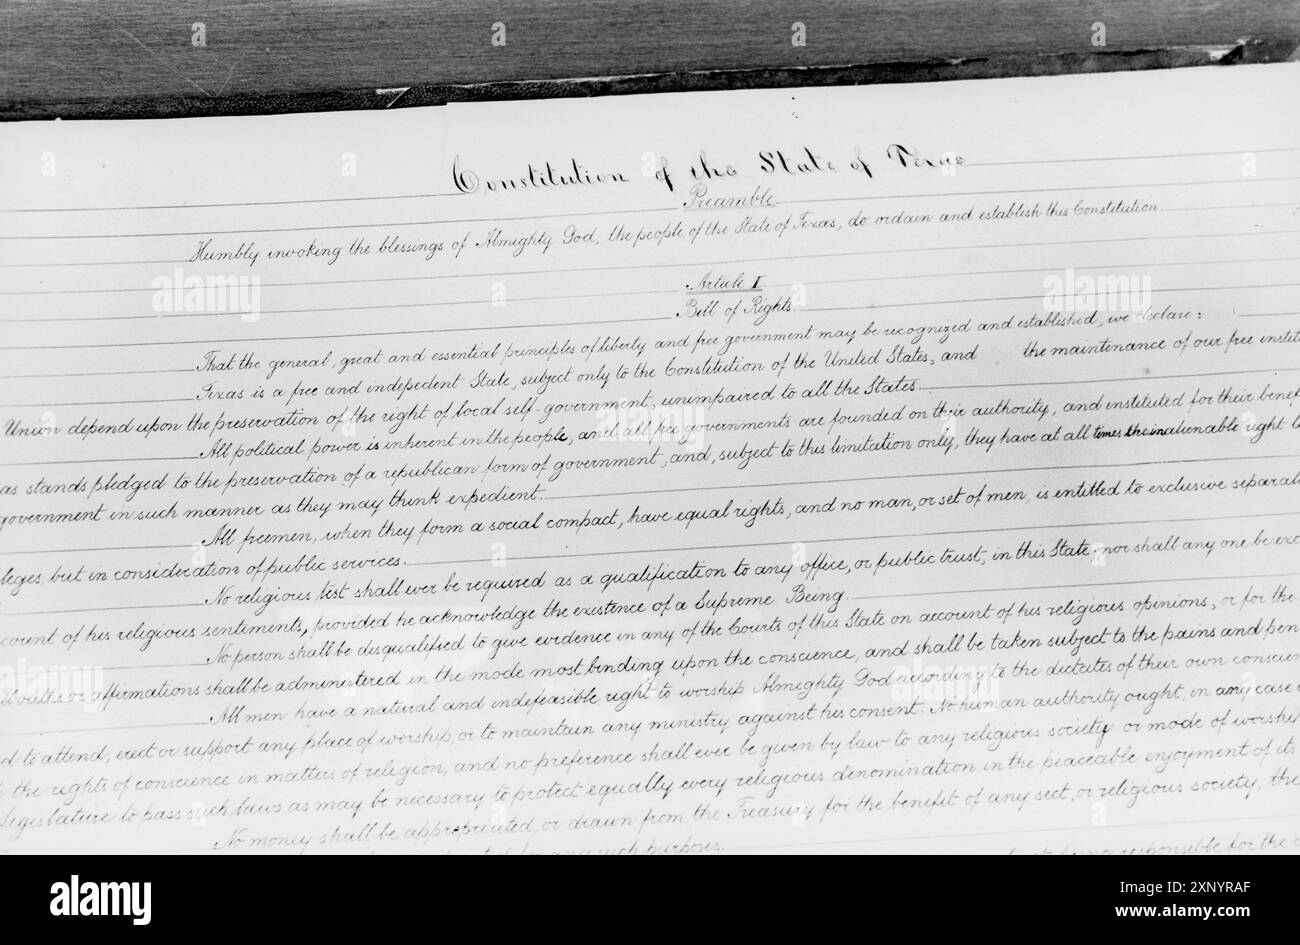 Constitution of the State of Texas
Preamble.
Humbly invoking the blessings of Almighty God, the people of the State of Texas, do ordain and establish this Constitution.
Article I.
Bill of Rights.
That the general, great and essential principles of liberty and free government may be recognized and established, we declare:
Texas is a free and indepedent State, subject only to the Constitution of the United States, and the maintenance of our free instit
Union depend upon the preservation of the right of local self-government, unimpaired to all the States.
All political power is inherent in the people, and all free governments are founded on their authority, and instituted for their benef
as stands pledged to the preservation of a republican form of government, and, subject to this limitation only, they have at all times the inalienable right to
government in such manner as they may think expedient.
All freemen, when they form a social compact, have equal rights, and no man, or set of men, is entitled to exclusive separat
leges, but in consideration of public services.
No religious test shall ever be required as a qualification to any office, or public trust, in this State; nor shall any one be exc
count of his religious sentiments, provided he acknowledge the existence of a Supreme Being.
No person shall be disqualified to give evidence in any of the Courts of this State on account of his religious opinions, or for the
oaths or affirmations shall be administered in the mode most binding upon the conscience, and shall be taken subject to the pains and pen
All men have a natural and indefeasible right to worship Almighty God according to the dictates of their own conscien
d to attend, erect or support any place of worship, or to maintain any ministry against his consent. No human authority ought, in any case
the rights of conscience in matters of religion, and no preference shall ever be given by law to any religious society or mode of worship
Legislature to pass such laws as may be necessary to protect equally every religious denomination in the peaceable enjoyment of its
No money shall be appropriated, or drawn from the Treasury for the benefit of any sect, or religious society, the
any such purposes.
being responsible for the
alamy
Image ID: 2XNYRAF
www.alamy.com